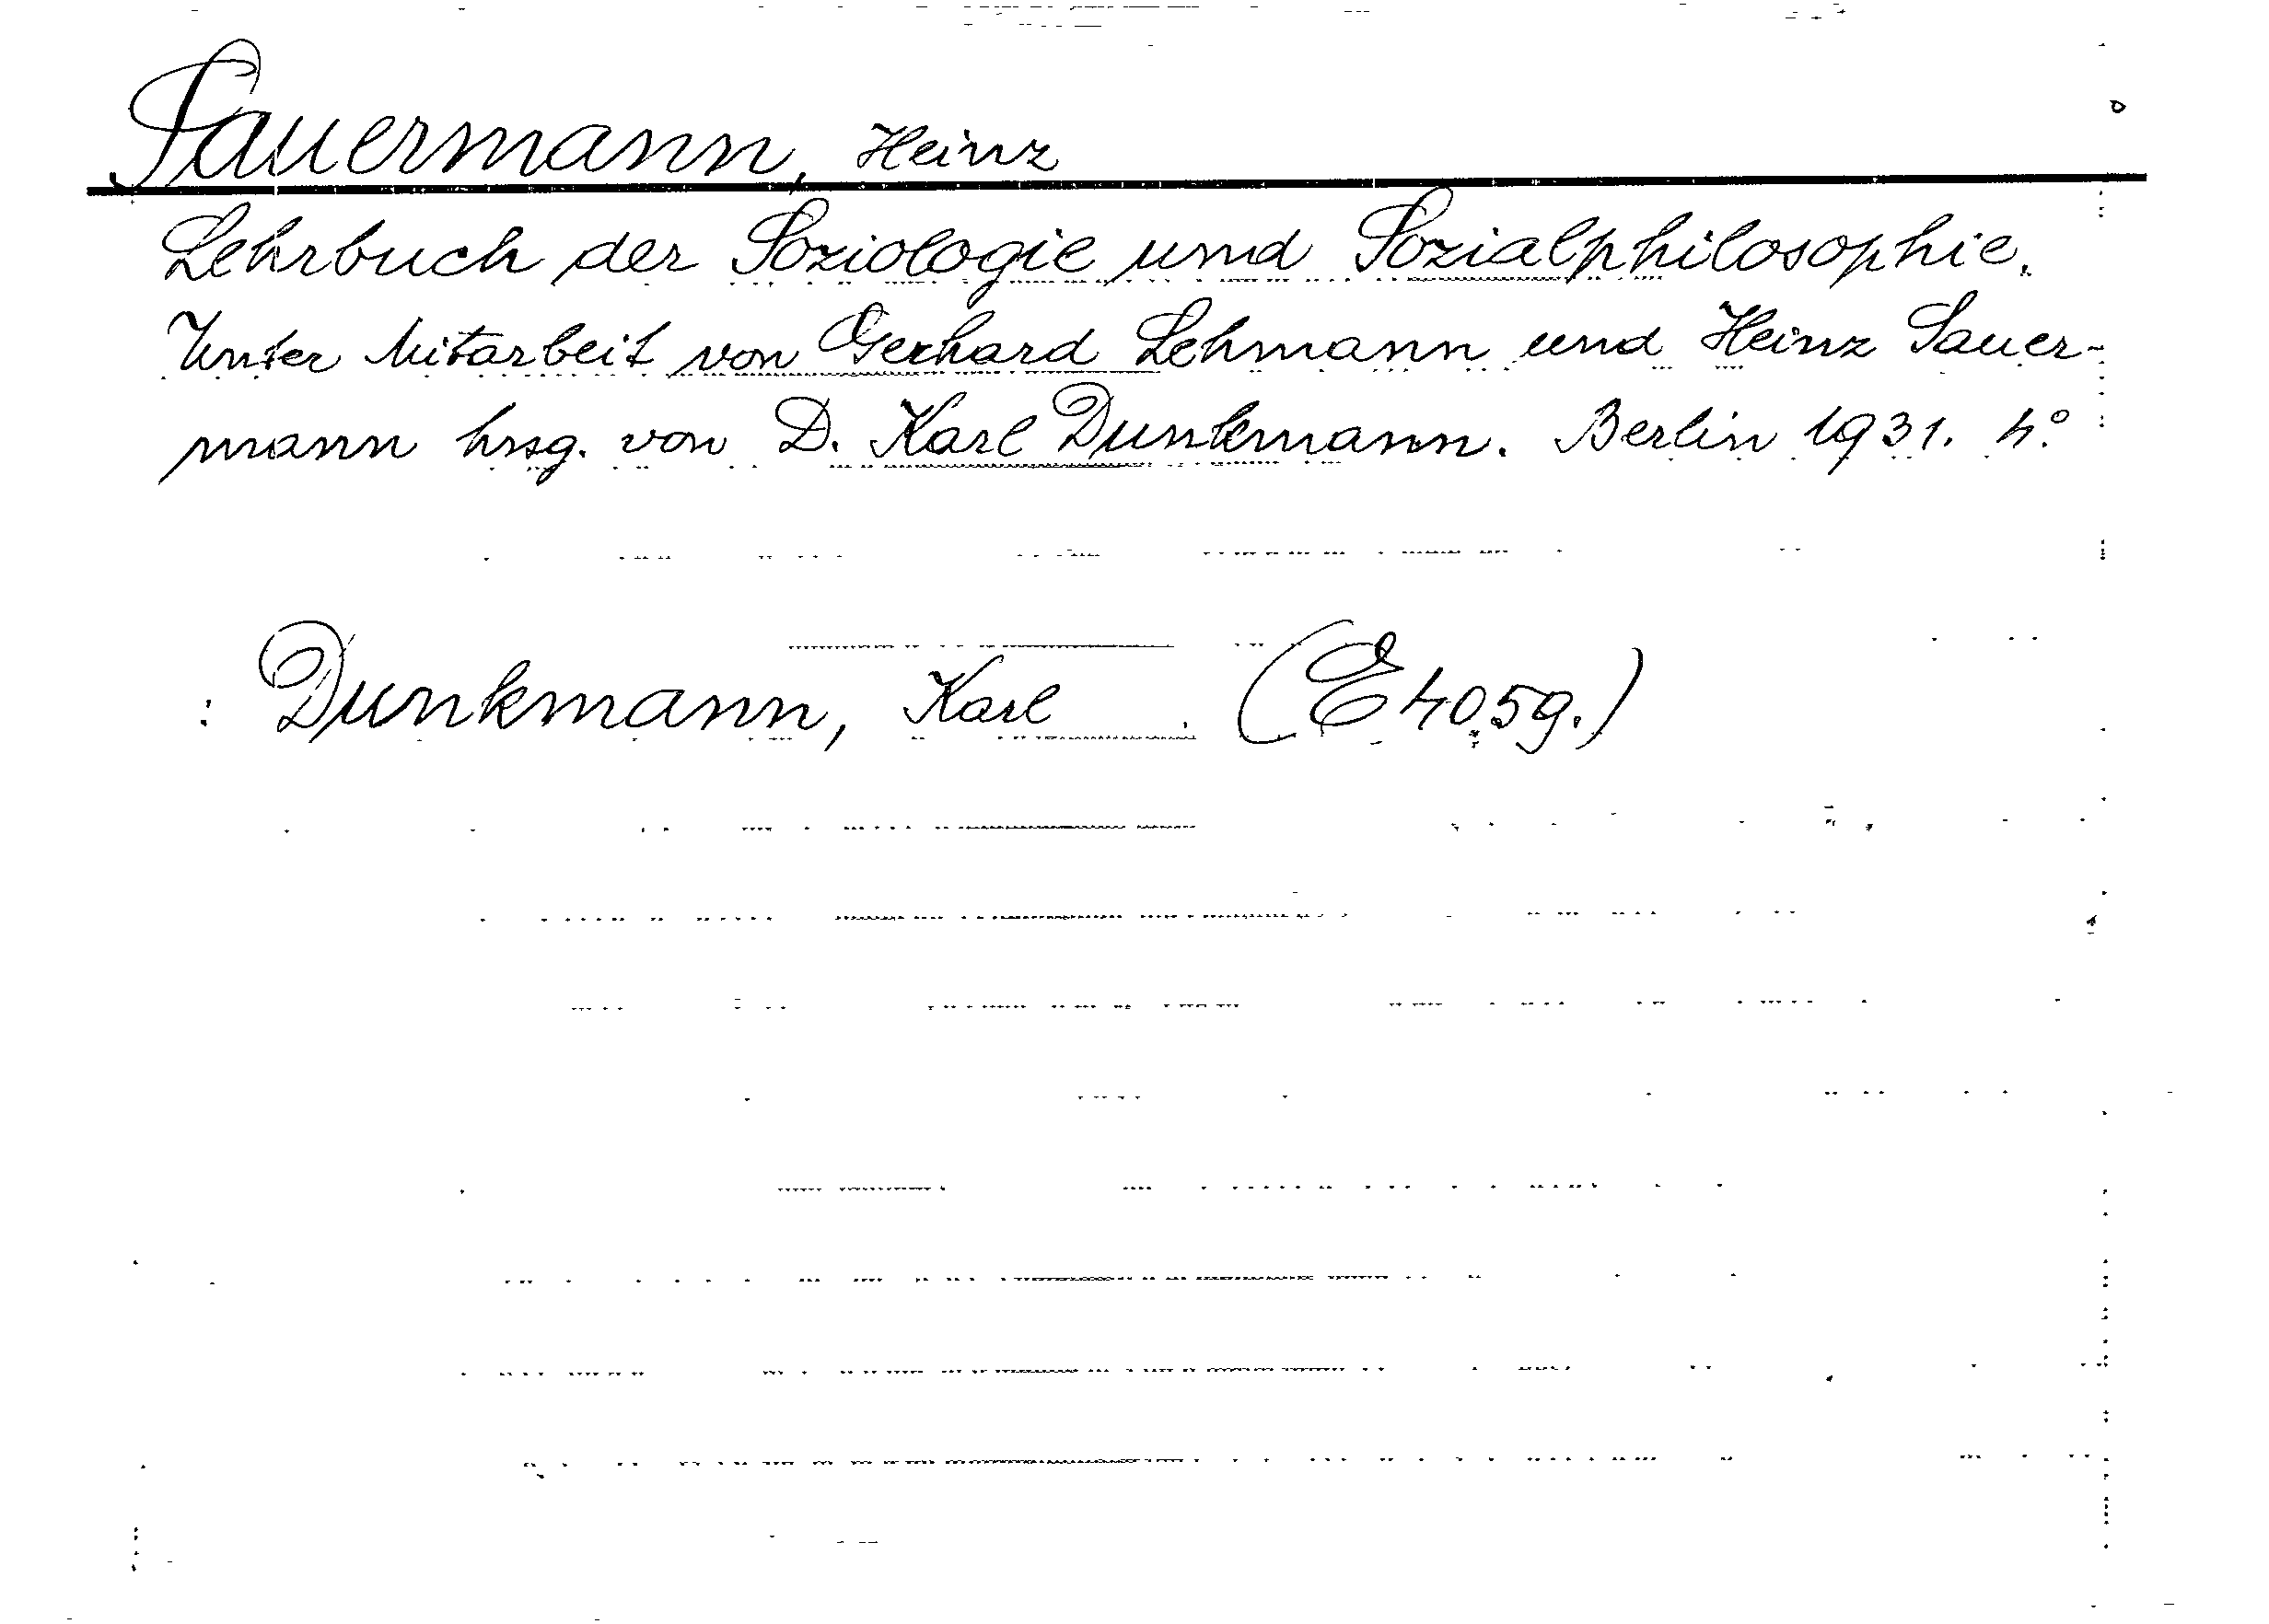 Sauermann, Heinz
Lehrbuch der Soziologie und Sozialphilosophie.
Unter Mitarbeit von Gerhard Lehmann und Heinz Sauer-
mann hrsg. von D. Karl Dunkmann. Berlin 1931. 4°.
: Dunkmann, Karl (E 4059.)